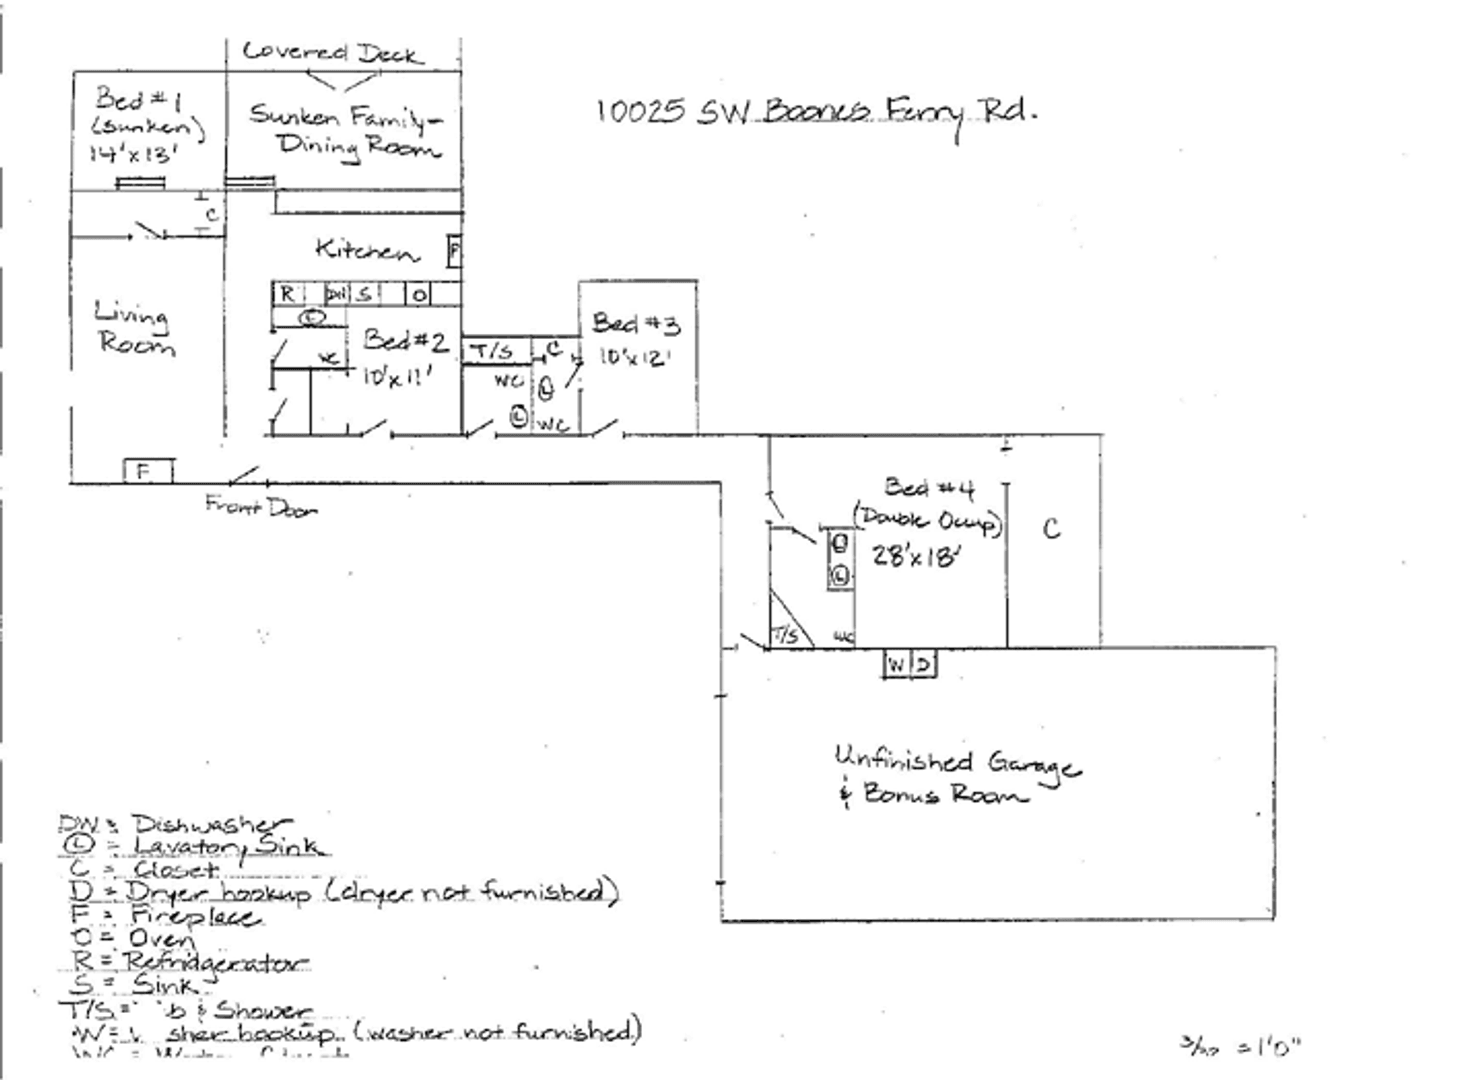 Covered Deck
Bed #1
(sunken)
14'x13'
Sunken Family-
Dining Room
10025 SW Boones Ferry Rd.
C
Kitchen
F
R DW S O
L
Living
Room
WC
Bed #2
10'x11'
T/S C
WC L
L WC
Bed #3
10'x12'
F
Front Door
Bed #4
(Double Occup)
28'x18'
C
L
L
T/S WC
W D
Unfinished Garage
& Bonus Room
DW = Dishwasher
L = Lavatory Sink
C = Closet
D = Dryer hookup (dryer not furnished)
F = Fireplace
O = Oven
R = Refridgerator
S = Sink
T/S = b & Shower
W = sher hookup (washer not furnished)
WC =
= 1'0"